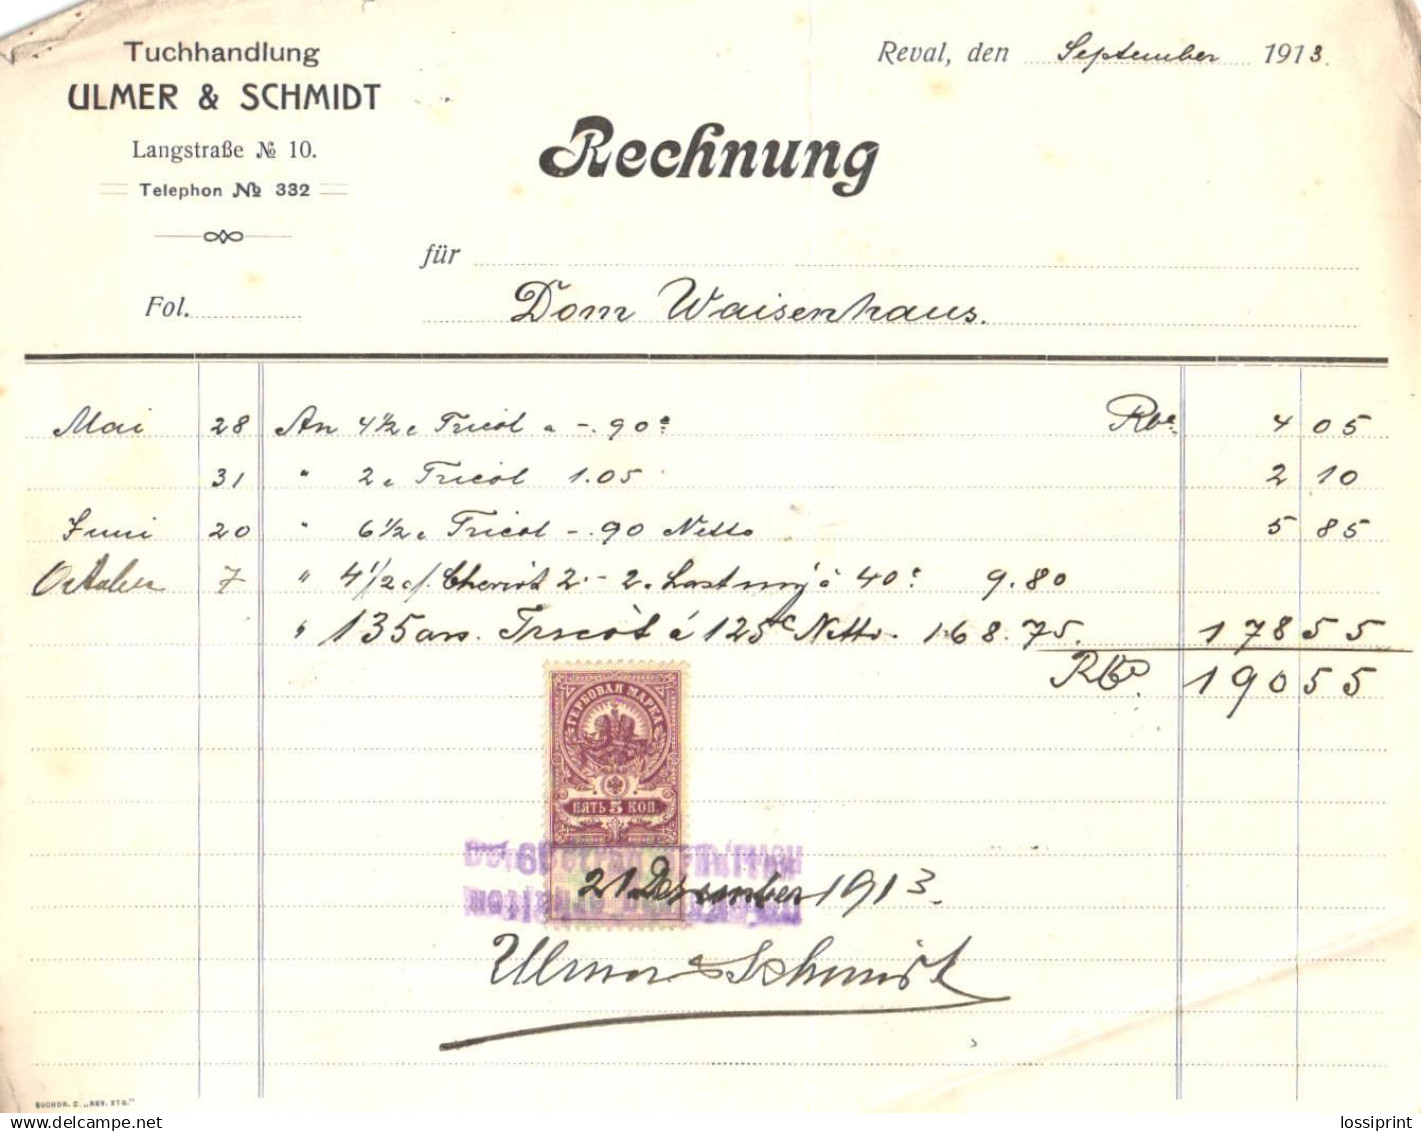 Tuchhandlung
ULMER & SCHMIDT
Langstraße № 10.
Telephon № 332
Reval, den September 1913.
Rechnung
für
Fol.
Dom Waisenhaus.
Mai 28 An 4½ Tricot a -.90 Rbl. 4 05
31 " 2 Tricot 1.05 2 10
Juni 20 " 6½ Tricot -.90 Netto 5 85
October 7 " 4½ Cheviot 2.- 2. 40 9.80
" 135 ars. Tricot á 125 Netto. 168.75. 178 55
Rbl. 190 55
ГЕРБОВАЯ МАРКА
ПЯТЬ 5 КОП
21 December 1913.
Ulmer & Schmidt
BUCHDR. D. „REV. ZTG."
lossiprint